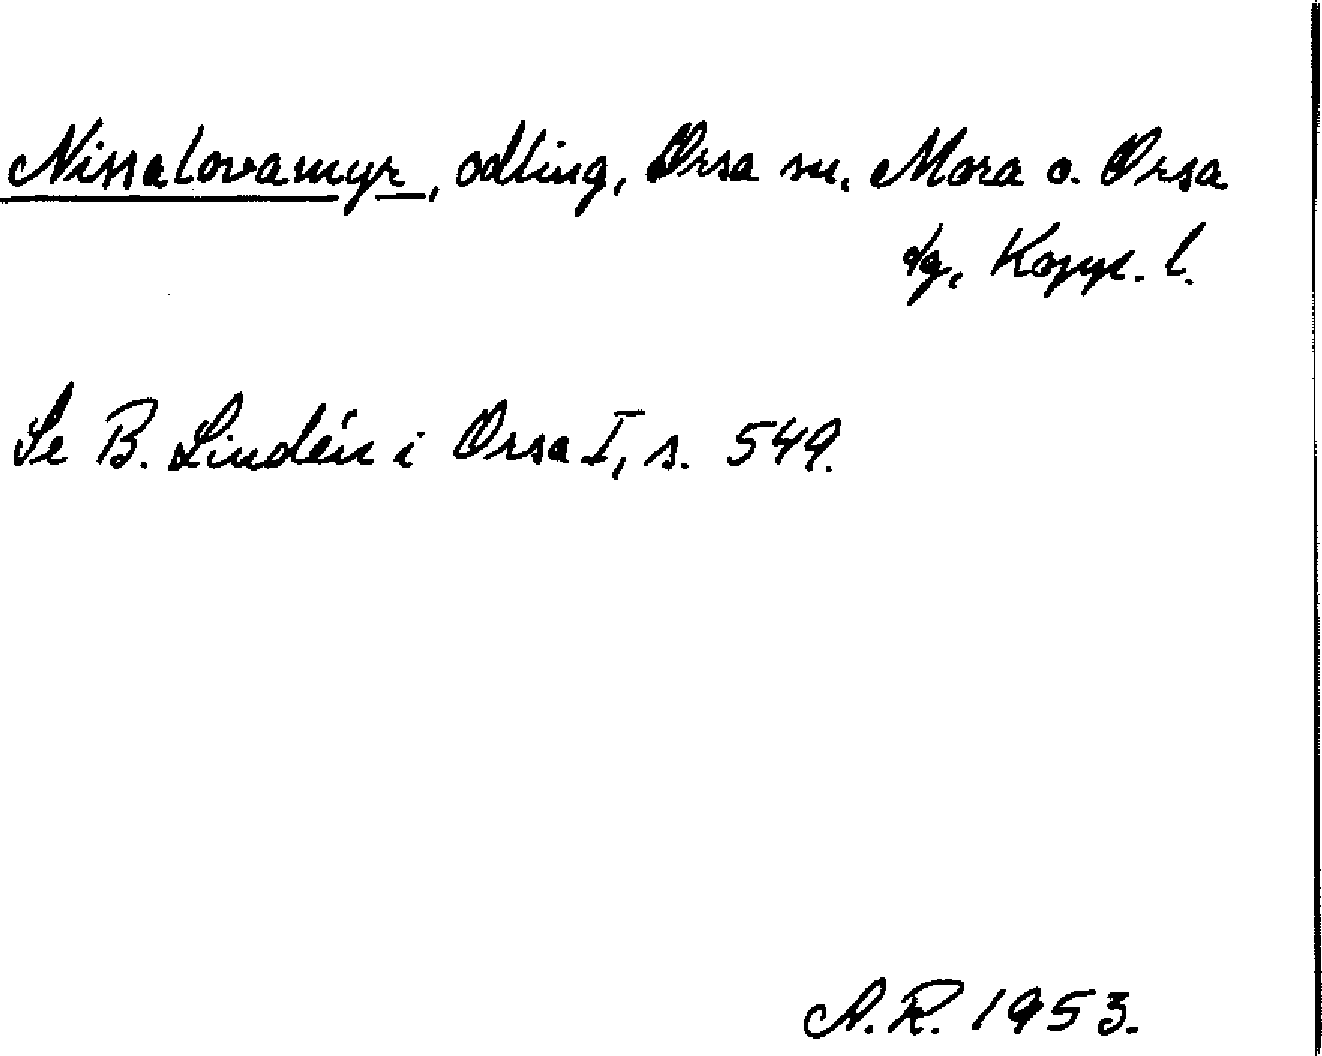 Nissalovamyr, odling, Orsa sn, Mora o. Orsa
dg, Kopp. l.
Se B. Lindén i Orsa I, s. 549.
A.R. 1953.